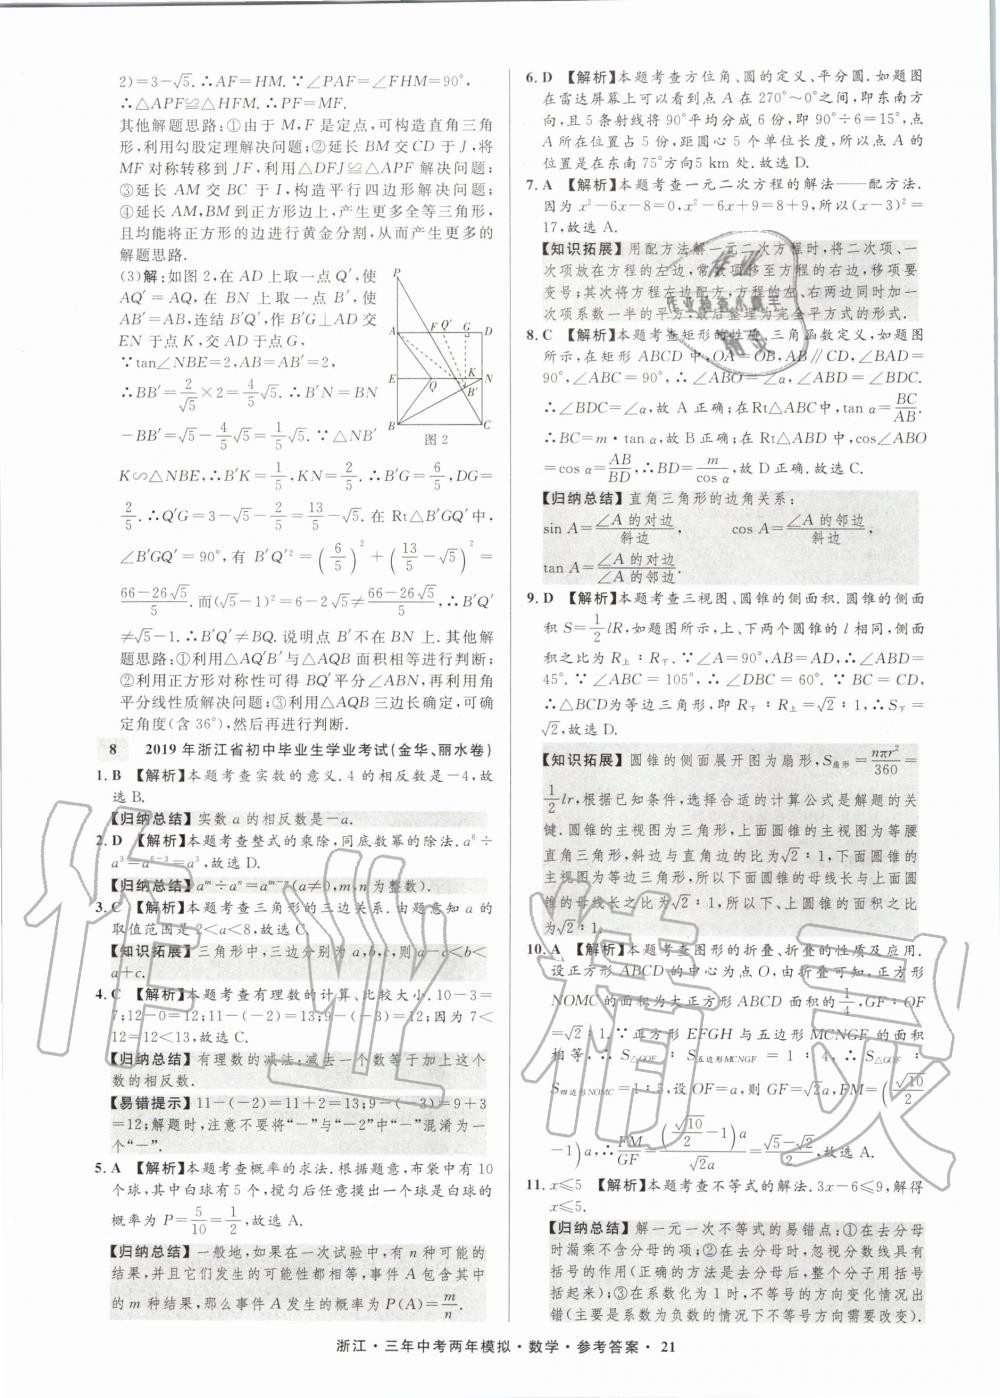 2)=3-√5.∴AF=HM.∵∠PAF=∠FHM=90°,
∴△APF≌△HFM.∴PF=MF.
其他解题思路:①由于M,F是定点,可构造直角三角
形,利用勾股定理解决问题;②延长BM交CD于J,将
MF对称转移到FJ,利用△DFJ≌△APF解决问题;
③延长AM交BC于I,构造平行四边形解决问题;
④延长AM,BM到正方形边上,产生更多全等三角形,
且均能将正方形的边进行黄金分割,从而产生更多的
解题思路.
(3)解:如图2,在AD上取一点Q′,使
AQ′=AQ,在BN上取一点B′,使
AB′=AB,连结B′Q′,作B′G⊥AD交
EN于点K,交AD于点G,
∵tan∠NBE=2,AB=AE=2,
∴BB′=2/√5×2=4/5√5.∴B′N=BN
-BB′=√5-4/5√5=1/5√5.∵△NB′
K∽△NBE,∴B′K=1/5,KN=2/5.∴B′G=6/5,DG=
2/5.∴Q′G=3-√5-2/5=13/5-√5.在Rt△B′GQ′中,
∠B′GQ′=90°,有B′Q′²=(6/5)²+(13/5-√5)²=
(66-26√5)/5.而(√5-1)²=6-2√5≠(66-26√5)/5,∴B′Q′
≠√5-1.∴B′Q′≠BQ.说明点B′不在BN上.其他解
题思路:①利用△AQ′B′与△AQB面积相等进行判断;
②利用正方形对称性可得BQ′平分∠ABN,再利用角
平分线性质解决问题;③利用△AQB三边长确定,可确
定角度(含36°),然后再进行判断.
P
A F Q′ G D
E Q K N
B′
B C
图2
8 2019年浙江省初中毕业生学业考试(金华、丽水卷)
1.B 【解析】本题考查实数的意义.4的相反数是-4,故
选B.
【归纳总结】实数a的相反数是-a.
2.D 【解析】本题考查整式的乘除,同底数幂的除法.a⁶÷
a³=a⁶⁻³=a³,故选D.
【归纳总结】aᵐ÷aⁿ=aᵐ⁻ⁿ(a≠0,m,n为整数).
3.C 【解析】本题考查三角形的三边关系.由题意知a的
取值范围是2<a<8,故选C.
【知识拓展】三角形中,三边分别为a,b,c,则a-c<b<
a+c.
4.C 【解析】本题考查有理数的计算、比较大小.10-3=
7;12-0=12;11-(-2)=13;9-(-3)=12;因为7<
12=12<13,故选C.
【归纳总结】有理数的减法:减去一个数等于加上这个
数的相反数.
【易错提示】11-(-2)=11+2=13;9-(-3)=9+3
=12;解题时,注意不要将“-”与“-2”中“-”混淆为一
个“-”.
5.A 【解析】本题考查概率的求法.根据题意,布袋中有10
个球,其中白球有5个,搅匀后任意摸出一个球是白球的
概率为P=5/10=1/2,故选A.
【归纳总结】一般地,如果在一次试验中,有n种可能的
结果,并且它们发生的可能性都相等,事件A包含其中
的m种结果,那么事件A发生的概率为P(A)=m/n.
6.D 【解析】本题考查方位角、圆的定义、平分圆.如题图
在雷达屏幕上可以看到点A在270°~0°之间,即东南方
向,且5条射线将90°平均分成6份,即90°÷6=15°.点
A所在位置占5份,距圆心5个单位长度,所以点A的
位置是在东南75°方向5 km处.故选D.
7.A 【解析】本题考查一元二次方程的解法——配方法.
因为x²-6x-8=0,x²-6x+9=8+9,所以(x-3)²=
17,故选A.
【知识拓展】用配方法解一元二次方程时,将二次项、一
次项放在方程的左边,常数项移至方程的右边,移项要
变号;其次将方程左边配方,方程的左、右两边同时加一
次项系数一半的平方,最后整理为完全平方式的形式.
8.C 【解析】本题考查矩形的性质、三角函数定义,如题图
所示,在矩形ABCD中,OA=OB,AB∥CD,∠BAD=
90°,∠ABC=90°.∴∠ABO=∠α,∠ABO=∠BDC.
∴∠BDC=∠α,故A正确;在Rt△ABC中,tan α=BC/AB.
∴BC=m·tan α,故B正确;在Rt△ABD中,cos∠ABO
=cos α=AB/BD,∴BD=m/cos α,故D正确.故选C.
【归纳总结】直角三角形的边角关系:
sin A=∠A的对边/斜边, cos A=∠A的邻边/斜边,
tan A=∠A的对边/∠A的邻边.
9.D 【解析】本题考查三视图、圆锥的侧面积.圆锥的侧面
积S=1/2lR,如题图所示,上、下两个圆锥的l相同,侧面
积之比为R上∶R下.∵∠A=90°,AB=AD,∴∠ABD=
45°.∵∠ABC=105°,∴∠DBC=60°.∵BC=CD,
∴△BCD为等边三角形,即R下∶R上=√2∶1,∴S下=
√2,故选D.
【知识拓展】圆锥的侧面展开图为扇形,S扇形=nπr²/360=
1/2lr,根据已知条件,选择合适的计算公式是解题的关
键.圆锥的主视图为三角形,上面圆锥的主视图为等腰
直角三角形,斜边与直角边的比为√2∶1,下面圆锥的
主视图为等边三角形,所以下面圆锥的母线长与上面圆
锥的母线长之比为√2∶1,所以上、下圆锥的面积之比
为√2∶1.
10.A 【解析】本题考查图形的折叠、折叠的性质及应用.
设正方形ABCD的中心为点O,由折叠可知,正方形
NOMC的面积为大正方形ABCD面积的1/4,GF∶OF
=√2∶1.∵正方形EFGH与五边形MCNGF的面积
相等,∴S△GOF∶S五边形MCNGF=1∶4,∴S△GOF∶
S四边形NOMC=1∶5,设OF=a,则GF=√2a,FM=(√10/2
-1)a.∴FM/GF=(√10/2-1)a/√2a=(√5-√2)/2.
11.x≤5 【解析】本题考查不等式的解法.3x-6≤9,解得
x≤5.
【归纳总结】解一元一次不等式的易错点:①在去分母
时漏乘不含分母的项;②在去分母时,忽视分数线具有
括号的作用(正确的方法是去分母时,整个分子用括号
括起来);③在忽略不等号的方向变化情况出
错(主要是系数为负数的情况下不等号方向需要改变).
浙江·三年中考两年模拟·数学·参考答案· 21
作业精灵